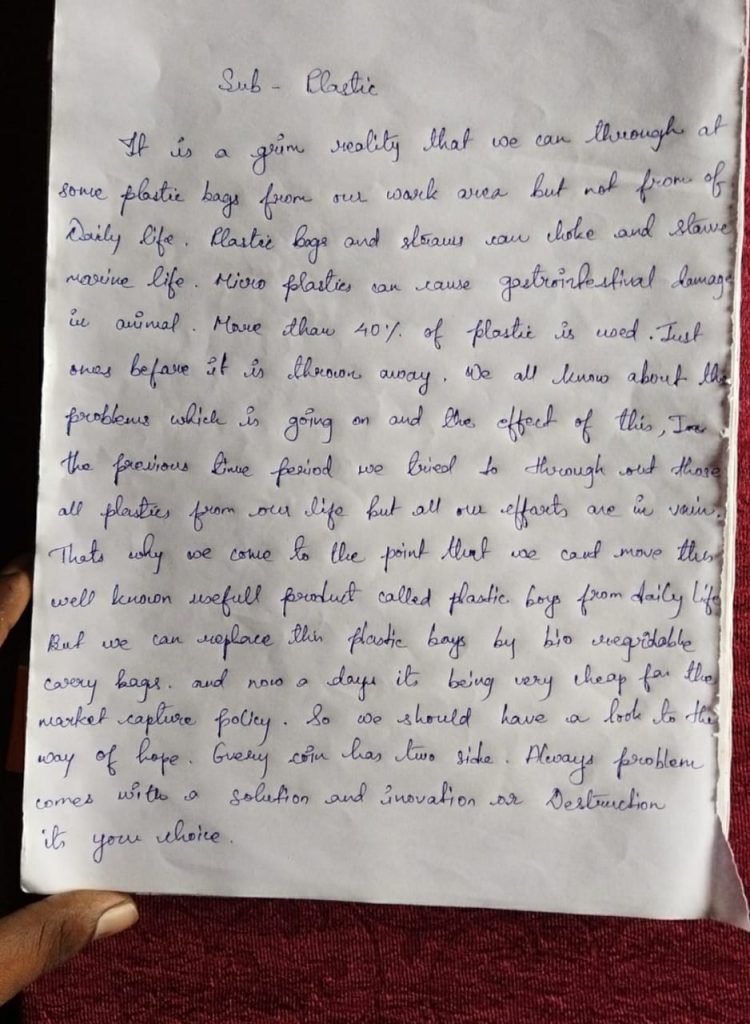 Sub - Plastic
It is a grim reality that we can through at
some plastic bags from our work area but not from of
Daily life. Plastic bags and straws can choke and starve
marine life. Micro plastics can cause gastrointestival damage
in animal. More than 40% of plastic is used. Just
ones before it is thrown away. We all know about the
problems which is going on and the effect of this, In
the previous time period we tried to through out those
all plastics from our life but all our efforts are in vain.
Thats why we come to the point that we cant move this
well known usefull product called plastic boys from daily life
But we can replace this plastic bags by bio regridable
carry bags. and now a days its being very cheap for the
market capture policy. So we should have a look to the
way of hope. Every coin has two side. Always problem
comes with a solution and inovation or Destruction
its your choice.